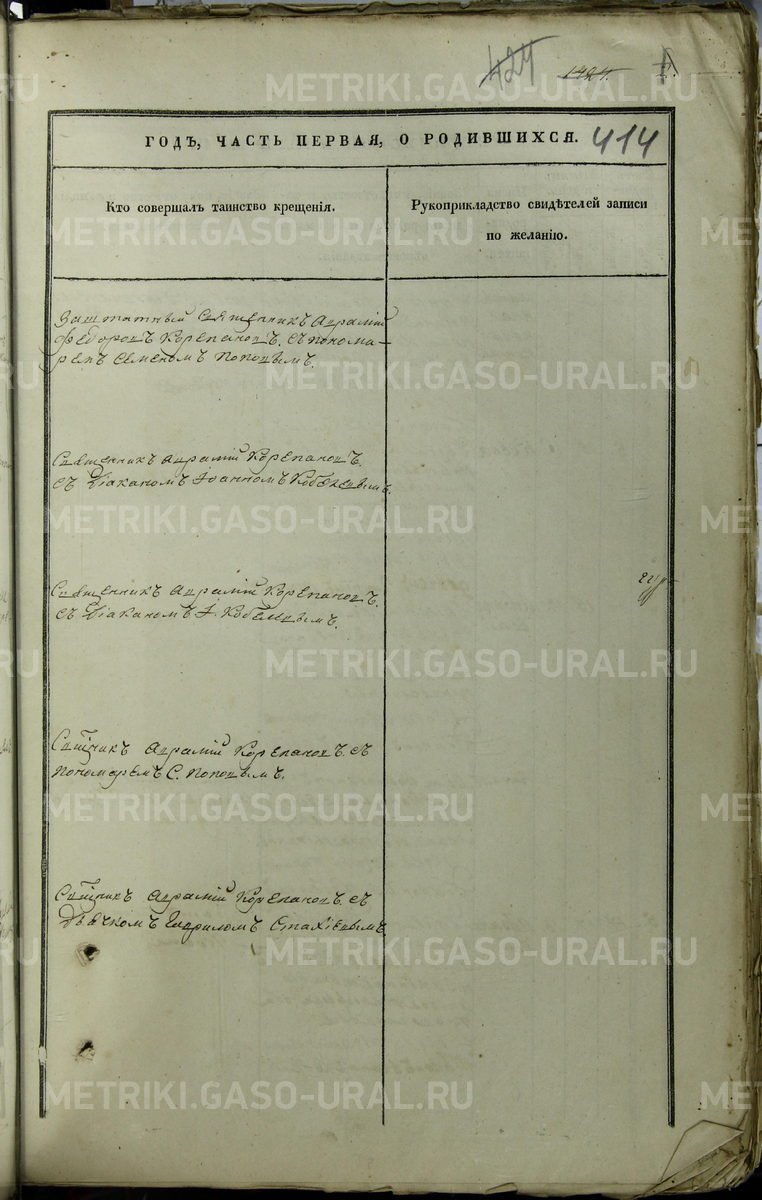 424
1424.
ГОДЪ, ЧАСТЬ ПЕРВАЯ, О РОДИВШИХСЯ. 414
Кто совершалъ таинство крещенія.
Рукоприкладство свидѣтелей записи
по желанію.
Заштатный Священникъ Аврамій
Ѳедоровъ Корепановъ. съ понома-
ремъ Семеномъ Поповымъ.
Священникъ Аврамій Корепановъ.
съ Діакономъ Іоанномъ
Священникъ Аврамій Корепановъ.
съ Діакономъ І.
Сщнникъ Аврамій Корепановъ. съ
пономаремъ С. Поповымъ.
Сщнникъ Аврамій Корепановъ. съ
Дьячкомъ Гавриломъ Стахіевымъ.
METRIKI.GASO-URAL.RU